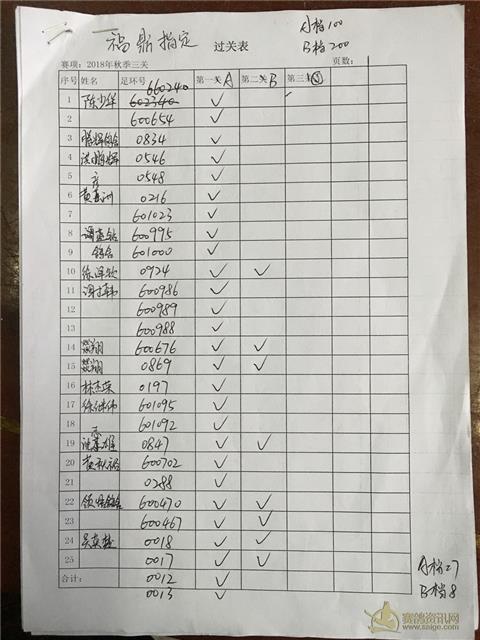 福鼎指定 过关表 A档100
B档200
赛项：2018年秋季三关 页数：
序号 姓名 足环号 第一关A 第二关B 第三关
660240
1 陈少华 602340 ✓
2 600654 ✓
3 0834 ✓
4 0546 ✓
5 0548 ✓
6 0216 ✓
7 601023 ✓
8 600995 ✓
9 601000 ✓
10 0924 ✓ ✓
11 600986 ✓
12 600989 ✓
13 600988 ✓
14 600676 ✓ ✓
15 0869 ✓ ✓
16 0197 ✓
17 601095 ✓
18 601092 ✓
19 0847 ✓ ✓
20 600702 ✓
21 0288 ✓
22 600470 ✓ ✓
23 600467 ✓ ✓
24 0018 ✓ ✓
25 0017 ✓ ✓
合计： 0012 ✓
0013 ✓
A档27
B档8
赛鸽资讯网
www.saige.com